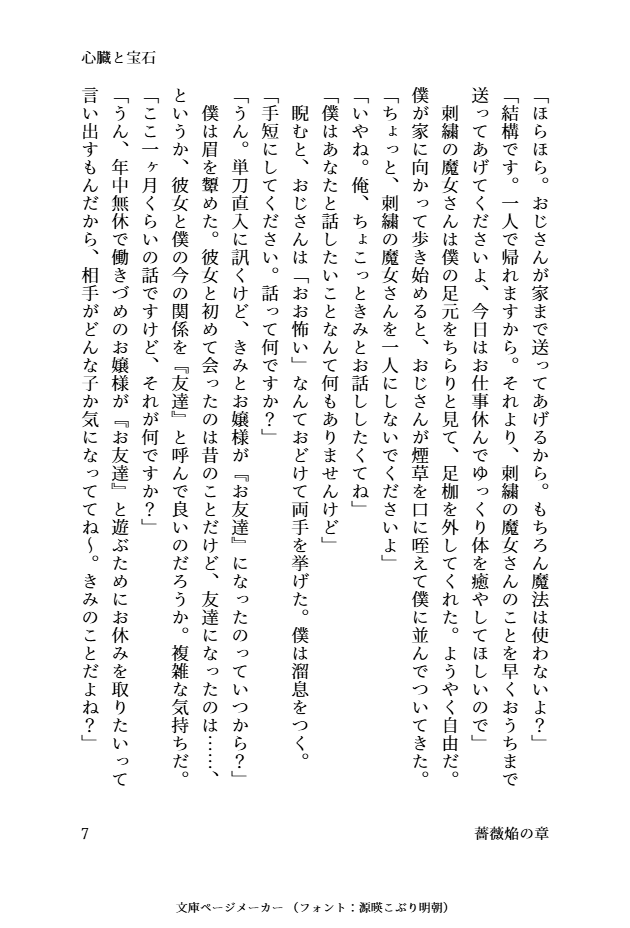 心臓と宝石
「ほらほら。おじさんが家まで送ってあげるから。もちろん魔法は使わないよ？」
「結構です。一人で帰れますから。それより、刺繍の魔女さんのことを早くおうちまで
送ってあげてくださいよ、今日はお仕事休んでゆっくり体を癒やしてほしいので」
　刺繍の魔女さんは僕の足元をちらりと見て、足枷を外してくれた。ようやく自由だ。
僕が家に向かって歩き始めると、おじさんが煙草を口に咥えて僕に並んでついてきた。
「ちょっと、刺繍の魔女さんを一人にしないでくださいよ」
「いやね。俺、ちょこっときみとお話ししたくてね」
「僕はあなたと話したいことなんて何もありませんけど」
　睨むと、おじさんは「おお怖い」なんておどけて両手を挙げた。僕は溜息をつく。
「手短にしてください。話って何ですか？」
「うん。単刀直入に訊くけど、きみとお嬢様が『お友達』になったのっていつから？」
　僕は眉を顰めた。彼女と初めて会ったのは昔のことだけど、友達になったのは……、
というか、彼女と僕の今の関係を『友達』と呼んで良いのだろうか。複雑な気持ちだ。
「ここ一ヶ月くらいの話ですけど、それが何ですか？」
「うん、年中無休で働きづめのお嬢様が『お友達』と遊ぶためにお休みを取りたいって
言い出すもんだから、相手がどんな子か気になっててね〜。きみのことだよね？」
薔薇焔の章
7
文庫ページメーカー（フォント：源暎こぶり明朝）